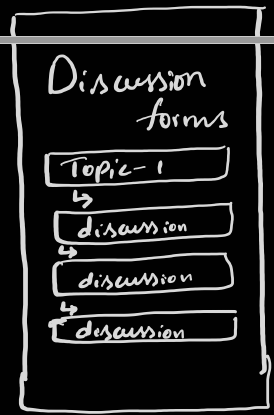 Discussion
forms
Topic-1
discussion
discussion
discussion